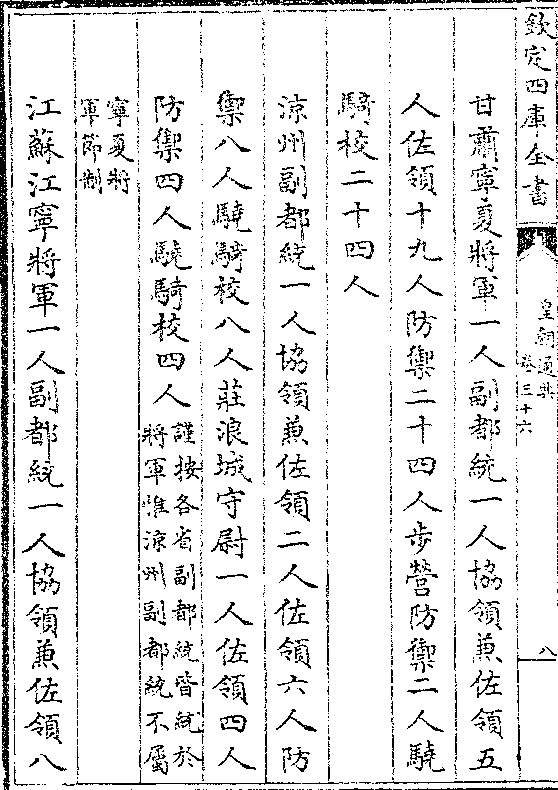 欽定四庫全書
皇朝通典
卷三十六
八
甘肅寧夏將軍一人副都統一人協領兼佐領五
人佐領十九人防禦二十四人步營防禦二人驍
騎校二十四人
涼州副都統一人協領兼佐領二人佐領六人防
禦八人驍騎校八人莊浪城守尉一人佐領四人
防禦四人驍騎校四人謹按各省副都統皆統於
將軍惟涼州副都統不屬
寧夏將
軍節制
江蘇江寧將軍一人副都統一人協領兼佐領八